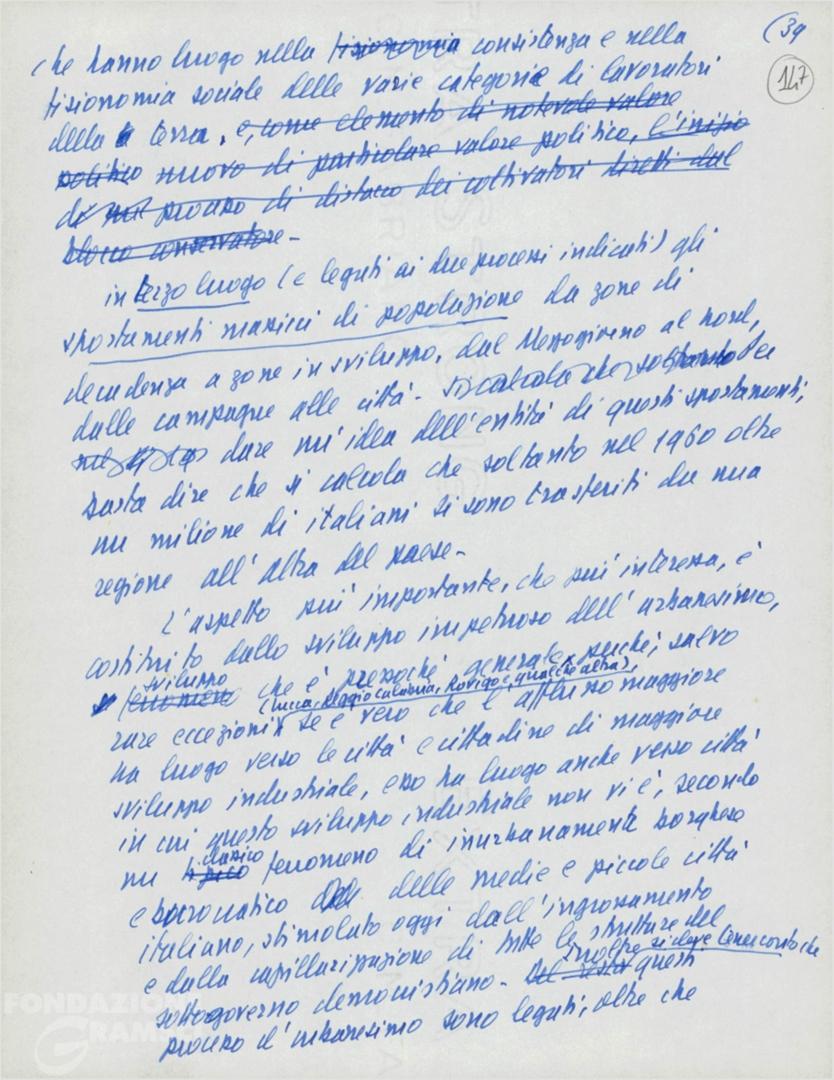 (39
147
che hanno luogo nella fisionomia consistenza e nella
fisionomia sociale delle varie categorie di lavoratori
della terra, e, come elemento di notevole valore
politico nuovo di particolare valore politico, l'inizio
di un processo di distacco dei coltivatori diretti dal
blocco conservatore -
in terzo luogo (e legati ai due processi indicati) gli
spostamenti massicci di popolazione da zone di
decadenza a zone in sviluppo, dal Mezzogiorno al nord,
dalle campagne alle città - si calcola che soltanto Per
dare un'idea dell'entità di questi spostamenti,
basta dire che si calcola che soltanto nel 1960 oltre
un milione di italiani si sono trasferiti da una
regione all'altra del paese -
L'aspetto più importante, che più interessa, è
costituito dallo sviluppo impetuoso dell'urbanesimo,
sviluppo
fenomeno che è pressoché generale perché, salvo
(Lucca, Reggio Calabria, Rovigo e qualche altra),
rare eccezioni se è vero che l'afflusso maggiore
ha luogo verso le città e cittadine di maggiore
sviluppo industriale, esso ha luogo anche verso città
in cui questo sviluppo industriale non vi è, secondo
classico
un tipico fenomeno di inurbanamento borghese
e burocratico delle medie e piccole città
italiane, stimolato oggi dall'ingrossamento
e dalla capillarizzazione di tutte le strutture del
Inoltre si deve tener conto che
sottogoverno democristiano - Del resto questi
processo d'urbanesimo sono legati, oltre che
FONDAZIONE
GRAMSCI